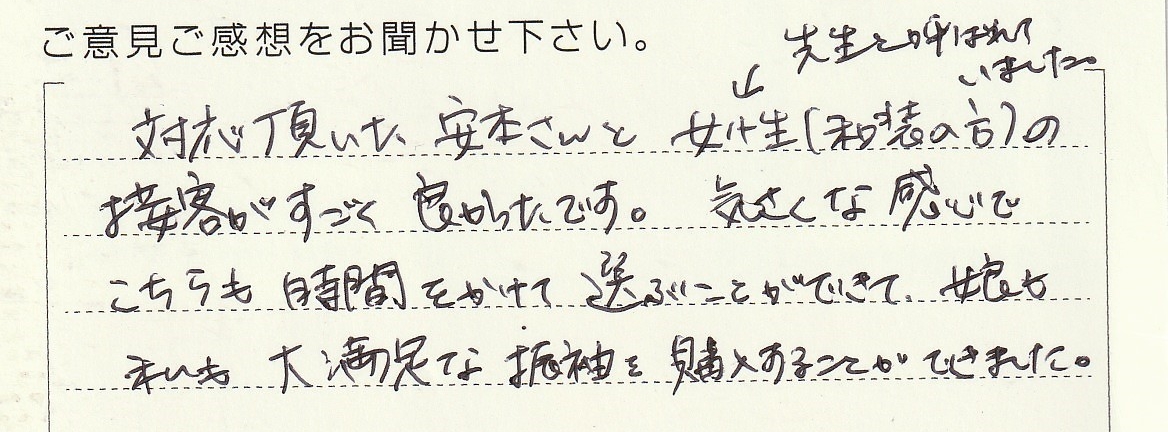 ご意見ご感想をお聞かせ下さい。
先生と呼ばれて
いました。
↓
対応頂いた安本さんと 女性(和装の方)の
接客がすごく良かったです。気さくな感じで
こちらも時間をかけて選ぶことができて、娘も
私も大満足な振袖を購入することができました。